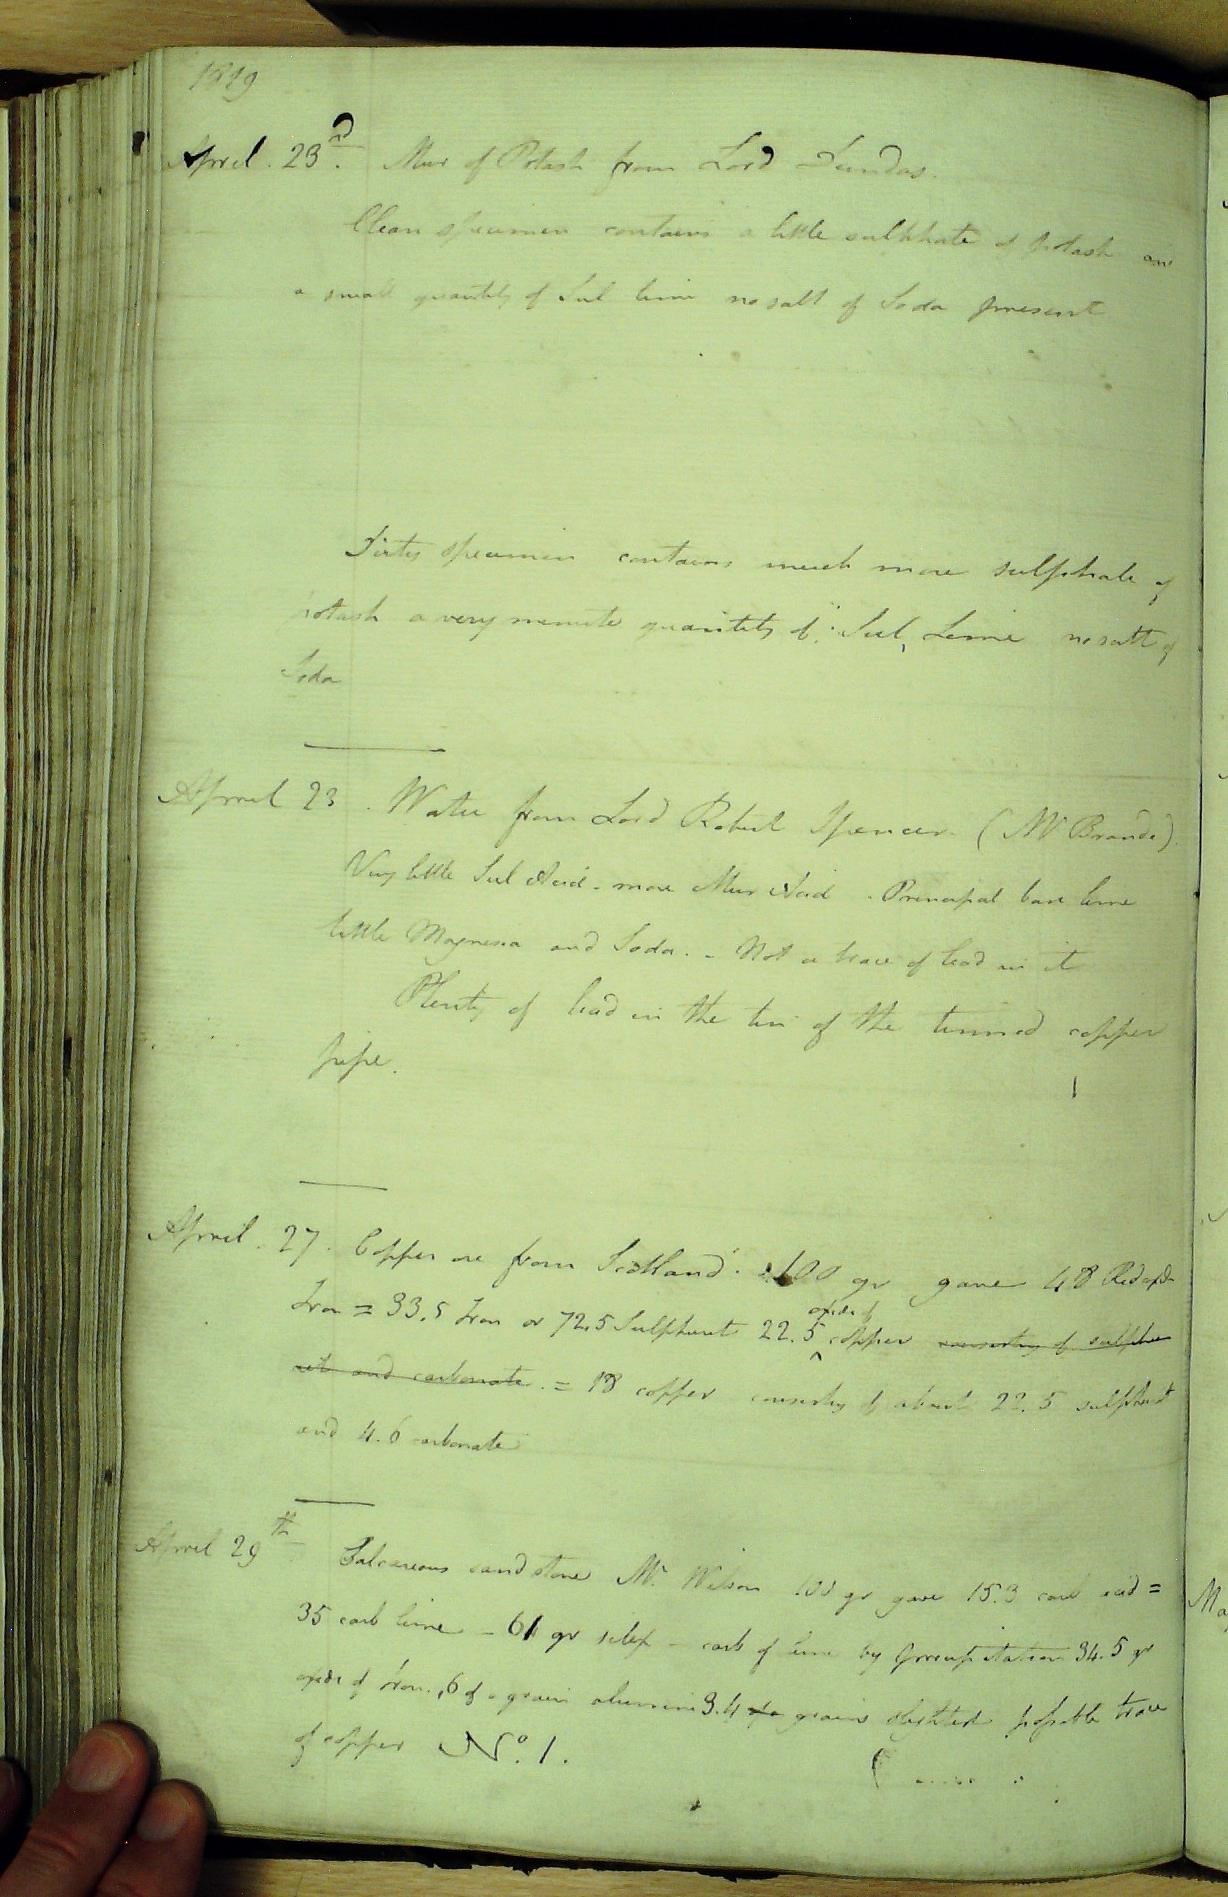 1819
April. 23rd. Mur of Potash from Lord Dundas.
Clean specimen contains a little sulphate of potash and
a small quantity of Sul lime no salt of Soda present
Dirty specimen contains much more sulphate of
potash a very minute quantity of Sul, Lime no salt of
Soda
April 23. Water from Lord Robert Spencer. (Mr Brande).
Very little Sul Acid - more Mur Acid. Principal base lime
little Magnesia and Soda. - Not a trace of lead in it
Plenty of lead in the tin of the tinned copper
pipe.
April. 27. Copper ore from Scotland. 100 gr gave 48 Red oxide
Iron = 33.5 Iron or 72.5 Sulphuret 22.5 oxide of copper consisting of sulphu
ret and carbonate. = 18 copper consisting of about 22.5 sulphuret
and 4.6 carbonate
April 29th Calcareous sandstone Mr. Wilson 100 gr gave 15.3 carb acid =
35 carb lime - 61 gr silex - carb of lime by precipitation 34.5 gr
oxide of iron .6 of a grain alumine 3.4 grains slightest possible trace
of copper No. 1.